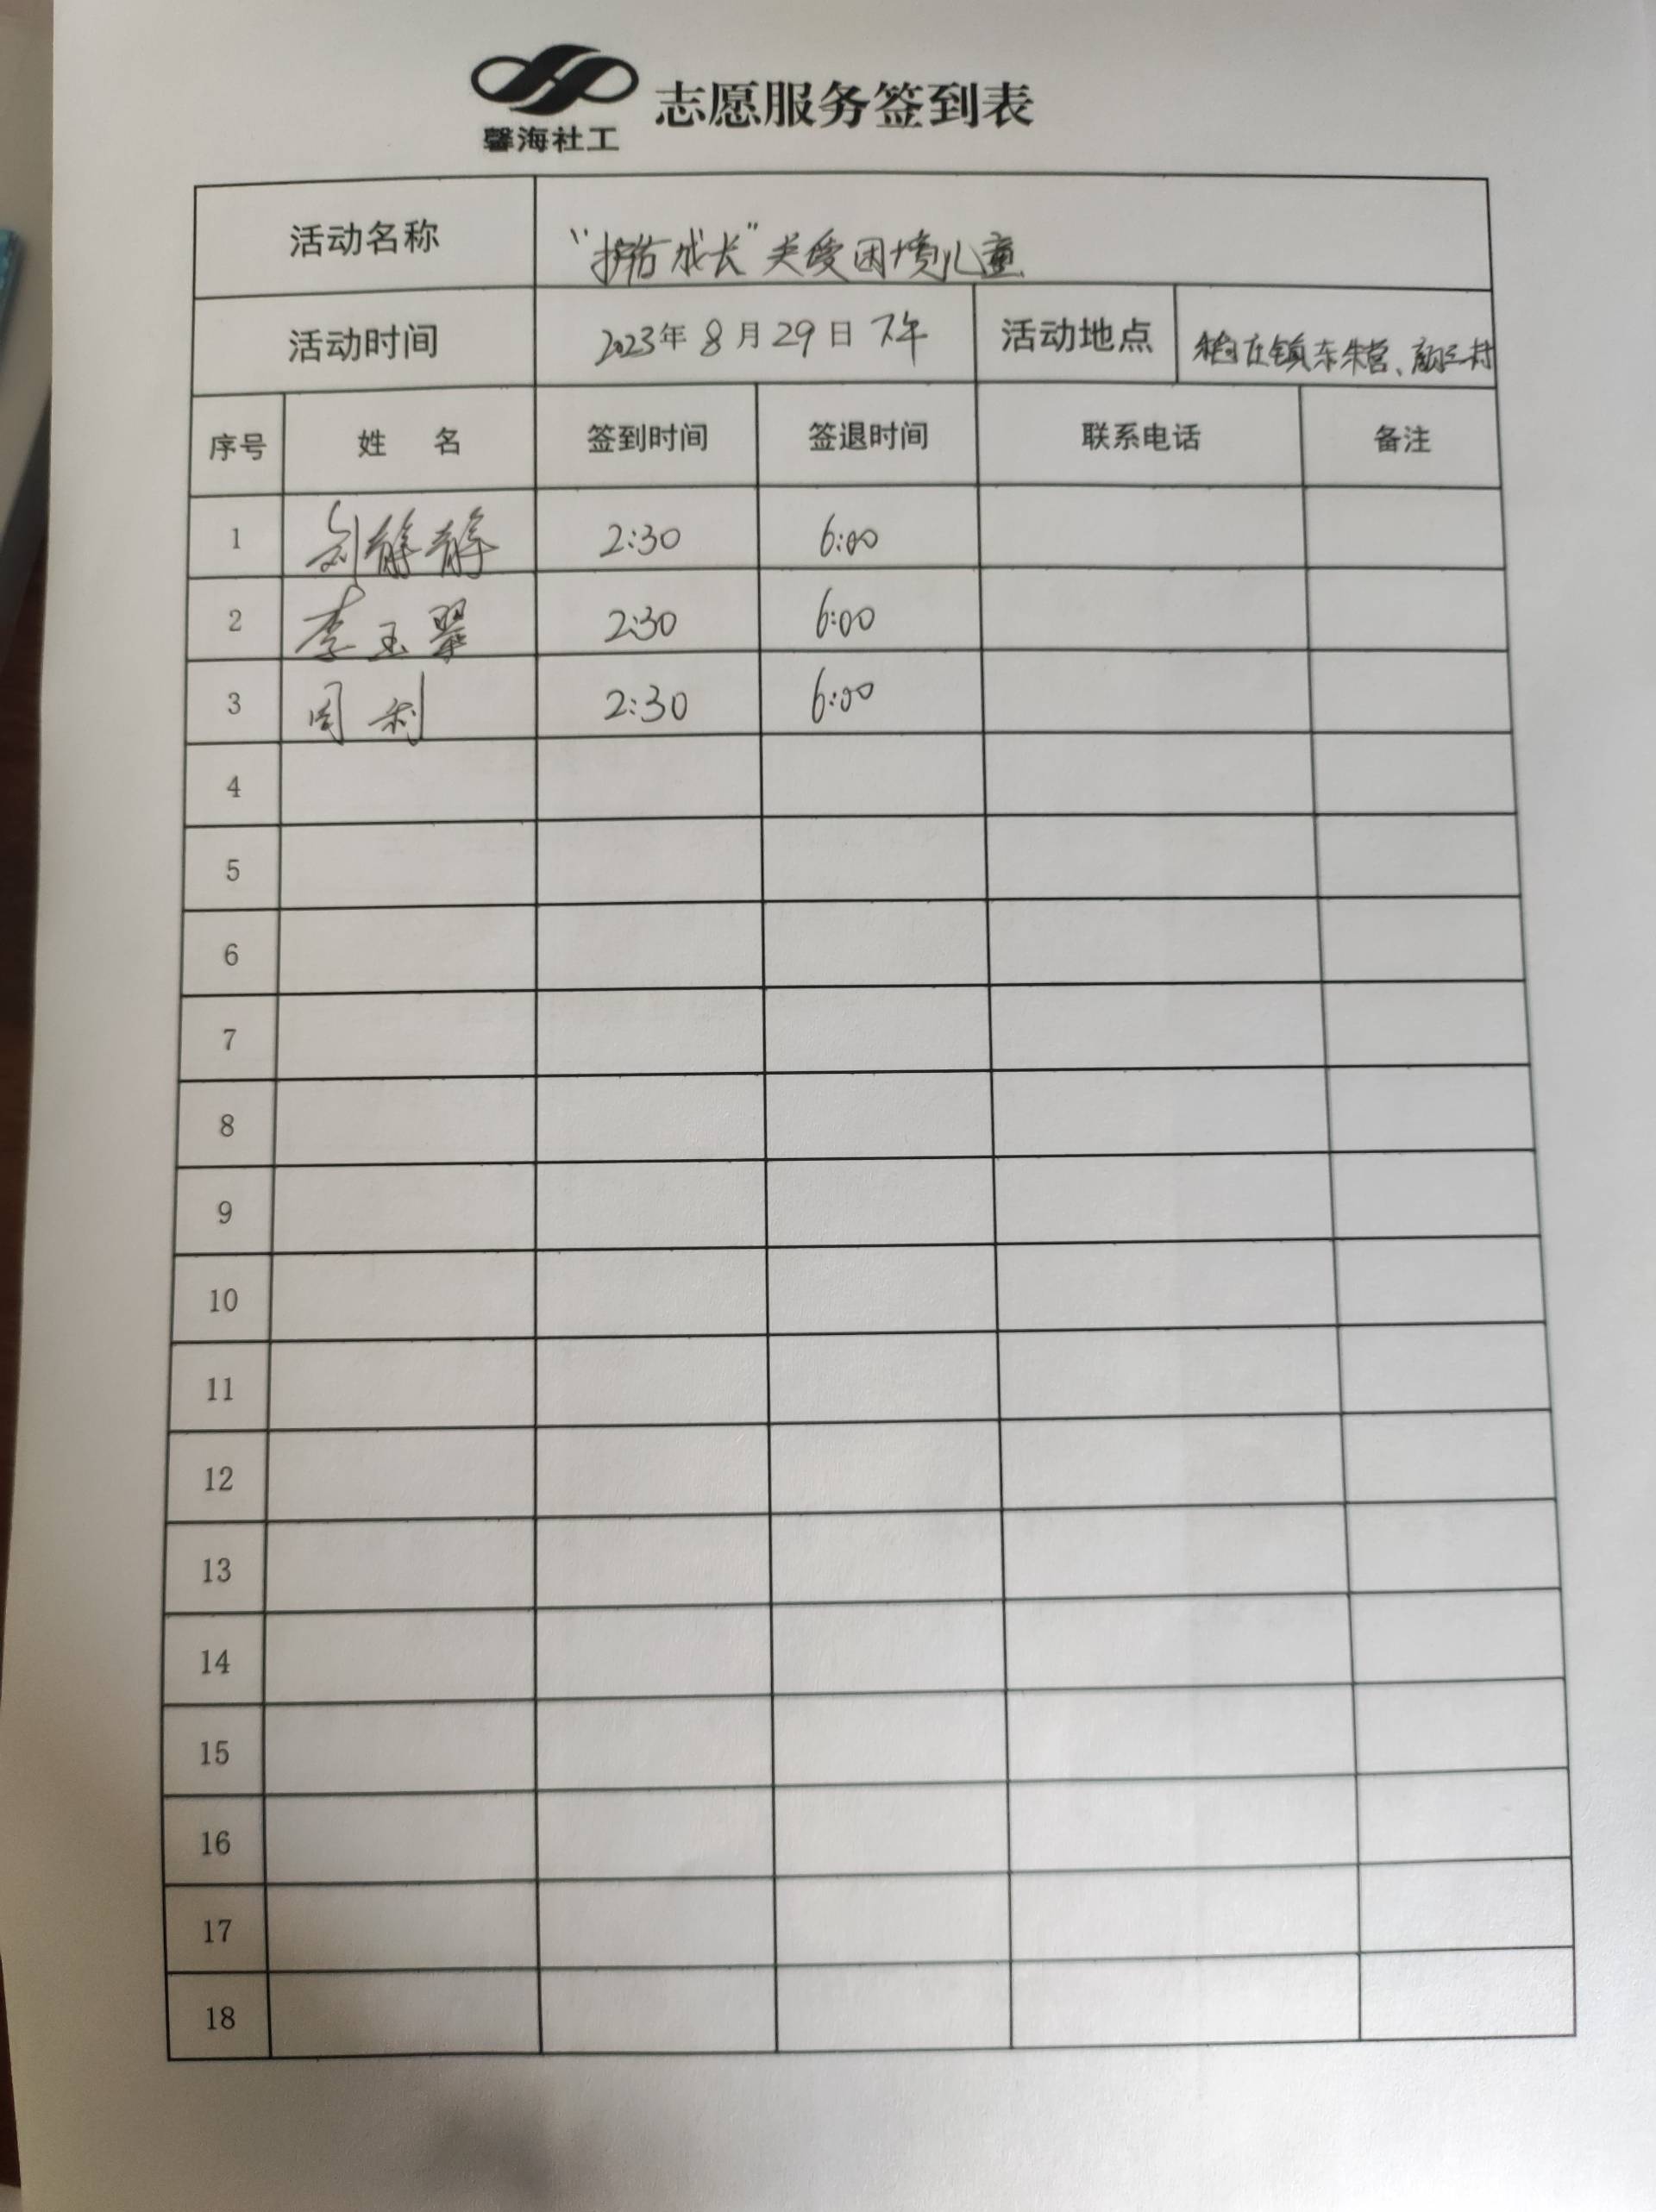 馨海社工 志愿服务签到表
活动名称 “护苗成长”关爱困境儿童
活动时间 2023年8月29日 下午 活动地点 庄镇东朱营、颜三村
序号 姓 名 签到时间 签退时间 联系电话 备注
1 刘静静 2:30 6:00
2 李玉翠 2:30 6:00
3 周利 2:30 6:00
4
5
6
7
8
9
10
11
12
13
14
15
16
17
18